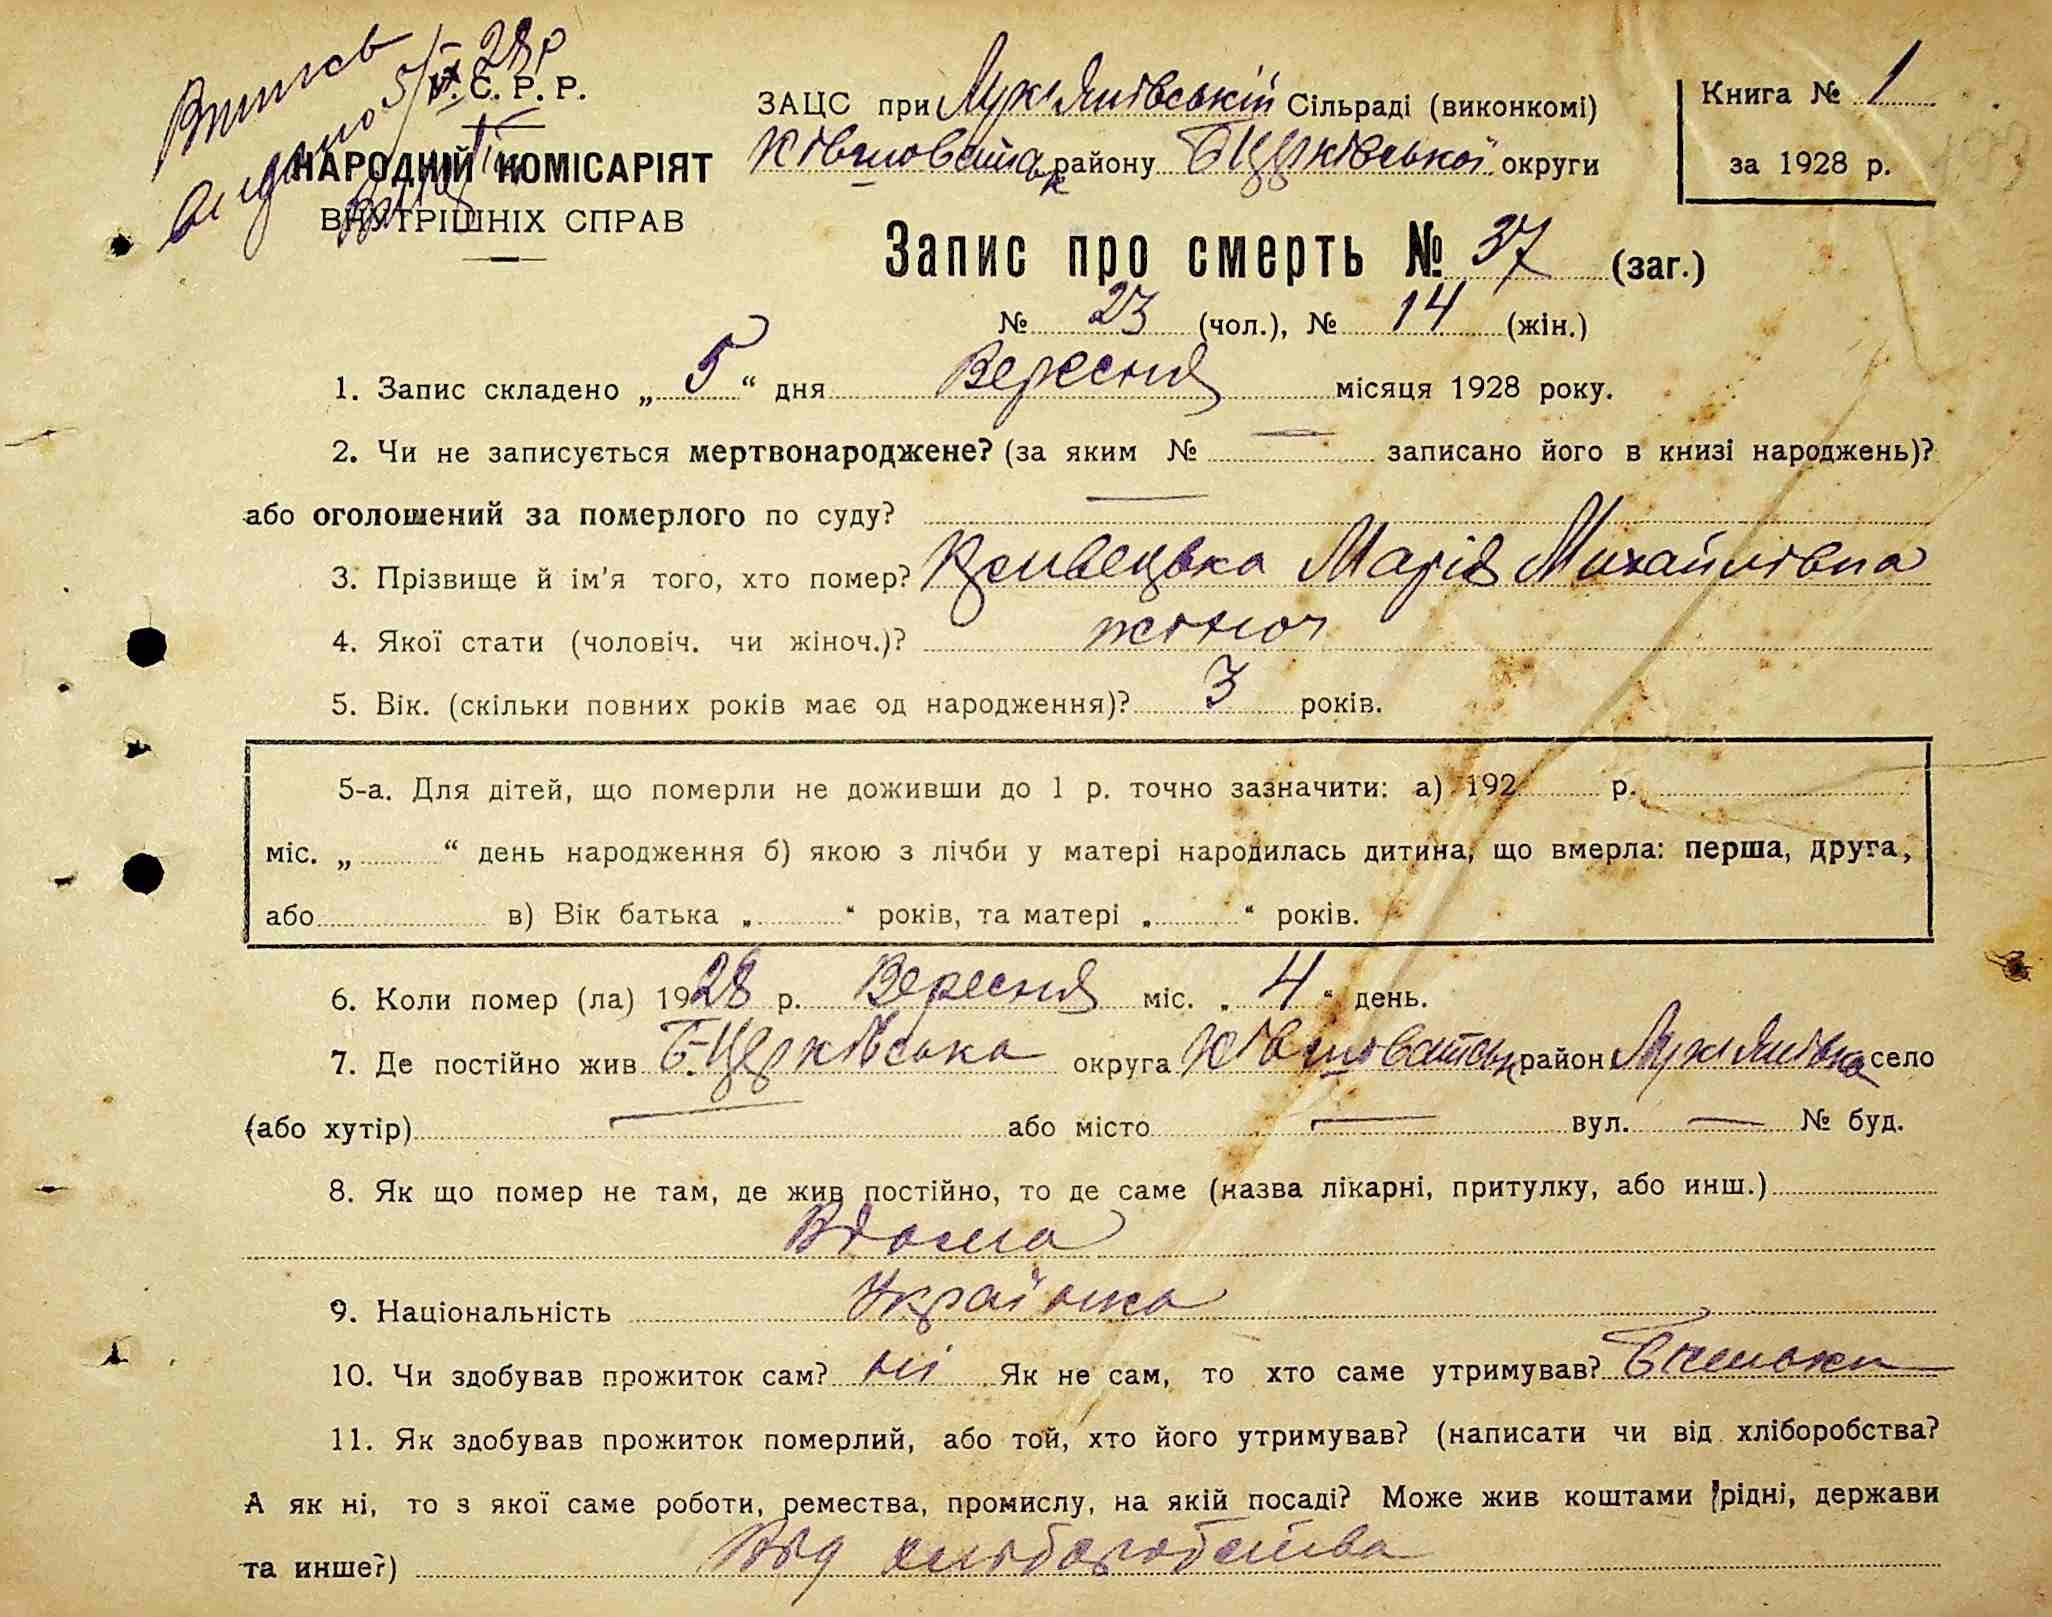 Витяг 5/IX 28р
видано
У. С. Р. Р.
НАРОДНІЙ КОМІСАРІЯТ
ВНУТРІШНІХ СПРАВ
ЗАЦС при Лук'янівській Сільраді (виконкомі)
Ківшоватськ району Б Церківської округи
Книга № 1
за 1928 р.
Запис про смерть № 37 (заг.)
№ 23 (чол.), № 14 (жін.)
1. Запис складено „ 5 “ дня Вересня місяця 1928 року.
2. Чи не записується мертвонароджене? (за яким № — записано його в книзі народжень)?
або оголошений за померлого по суду? —
3. Прізвище й ім'я того, хто помер? Марія Михайлівна
4. Якої стати (чоловіч. чи жіноч.)? жіноч
5. Вік. (скільки повних років має од народження)? 3 років.
5-а. Для дітей, що померли не доживши до 1 р. точно зазначити: а) 192 р.
міс. „ “ день народження б) якою з лічби у матері народилась дитина, що вмерла: перша, друга,
або в) Вік батька „ “ років, та матері „ “ років.
6. Коли помер (ла) 1928 р. Вересня міс. „ 4 “ день.
7. Де постійно жив Б-Церківська округа Ківшоватськ район Лук'янівка село
(або хутір) — або місто — вул. — № буд.
8. Як що помер не там, де жив постійно, то де саме (назва лікарні, притулку, або инш.)
Вдома
9. Національність Українка
10. Чи здобував прожиток сам? ні Як не сам, то хто саме утримував? Батьки
11. Як здобував прожиток померлий, або той, хто його утримував? (написати чи від хліборобства?
А як ні, то з якої саме роботи, ремества, промислу, на якій посаді? Може жив коштами рідні, держави
та инше?) Від хліборобства